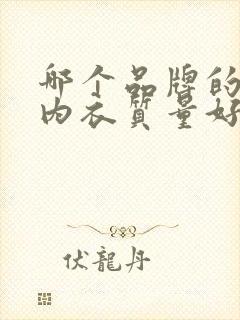 哪个品牌的
内衣质量好
伏龍丹